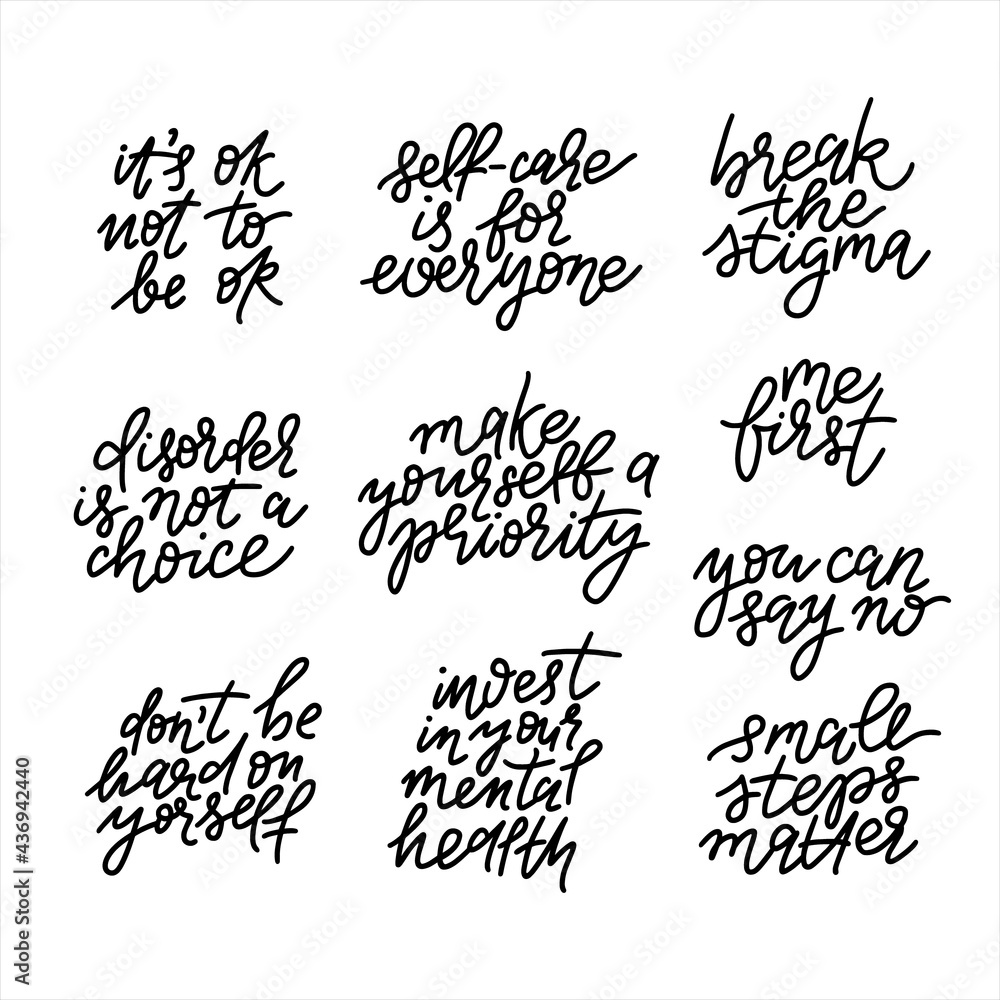 it's ok
not to
be ok
self-care
is for
everyone
break
the
stigma
disorder
is not a
choice
make
yourself a
priority
me
first
you can
say no
don't be
hard on
yorself
invest
in your
mental
health
small
steps
matter
Adobe Stock | #436942440